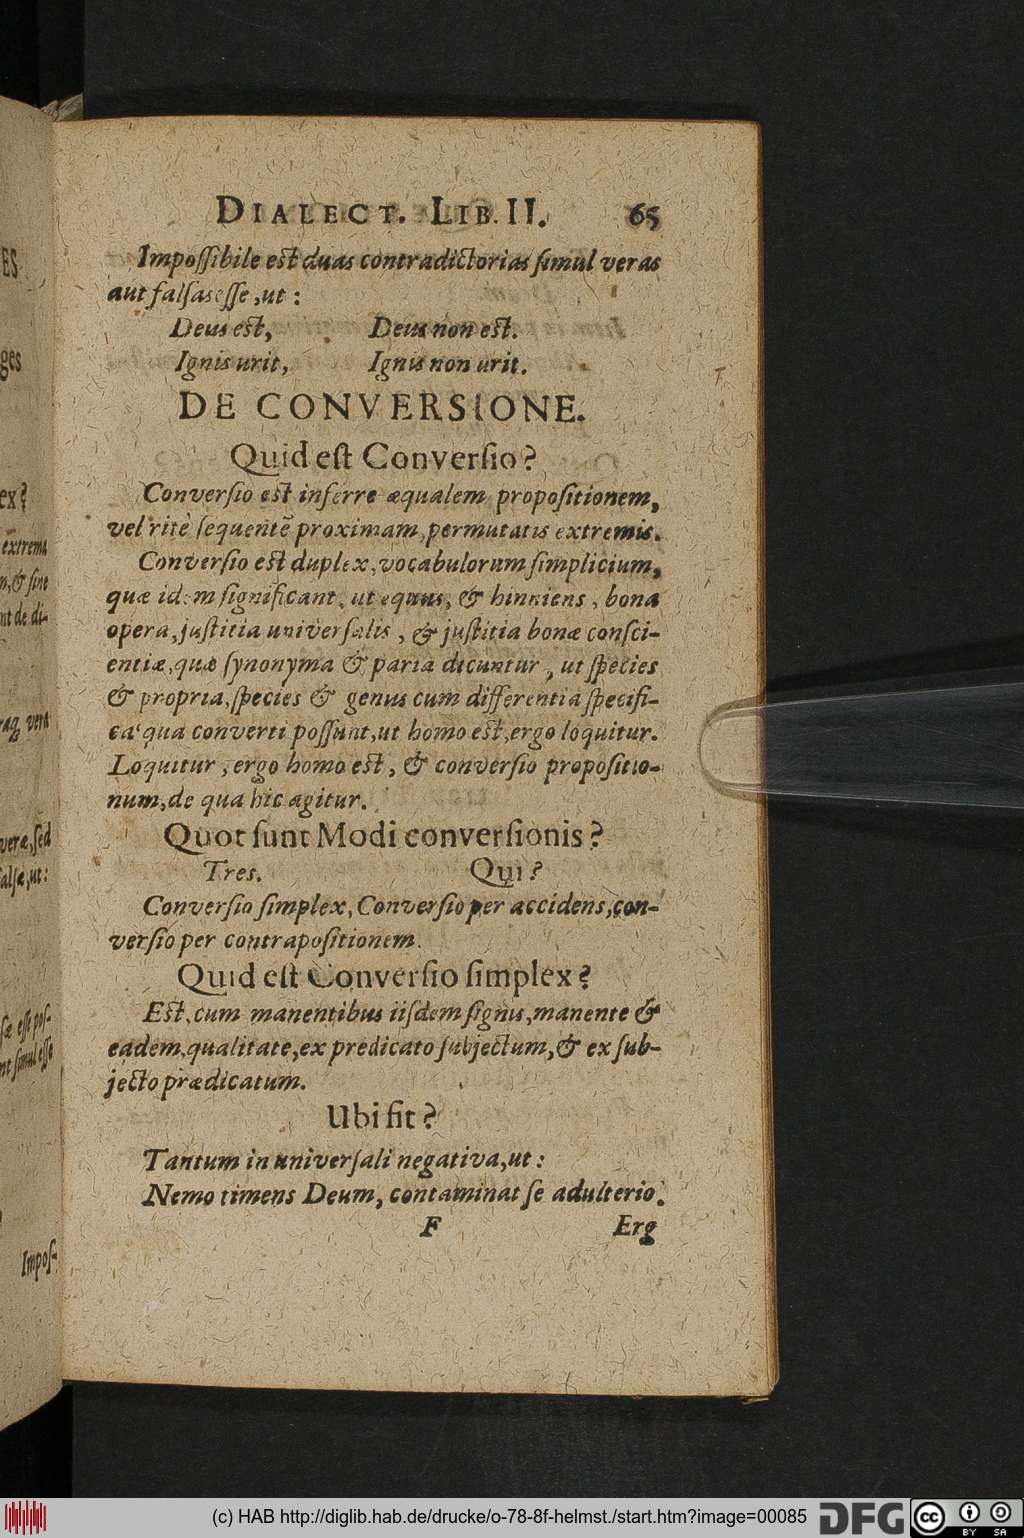 ES
ges
ex?
extrema
n, & sint
nt de di-
raq; vera
veræ, sed
falsæ, ut:
sæ esse pos-
nt simul esse
Impos-
DIALECT. LIB. II. 65
Impossibile est duas contradictorias simul veras
aut falsas esse, ut:
Deus est, Deus non est.
Ignis urit, Ignis non urit.
DE CONVERSIONE.
Quid est Conversio?
Conversio est inferre æqualem propositionem,
vel rite sequentē proximam, permutatis extremis.
Conversio est duplex, vocabulorum simplicium,
quæ idem significant, ut equus, & hinniens, bona
opera, justitia universalis, & justitia bonæ consci-
entiæ, quæ synonyma & paria dicuntur, ut species
& propria, species & genus cum differentia specifi-
ca' qua converti possunt, ut homo est, ergo loquitur.
Loquitur, ergo homo est, & conversio propositio-
num, de qua hic agitur.
Quot sunt Modi conversionis?
Tres. Qui?
Conversio simplex, Conversio per accidens, con-
versio per contrapositionem.
Quid est Conversio simplex?
Est, cum manentibus iisdem signis, manente &
eadem, qualitate, ex predicato subjectum, & ex sub-
jecto prædicatum.
Ubi fit?
Tantum in universali negativa, ut:
Nemo timens Deum, contaminat se adulterio.
F Erg
(c) HAB http://diglib.hab.de/drucke/o-78-8f-helmst./start.htm?image=00085 DFG cc BY SA